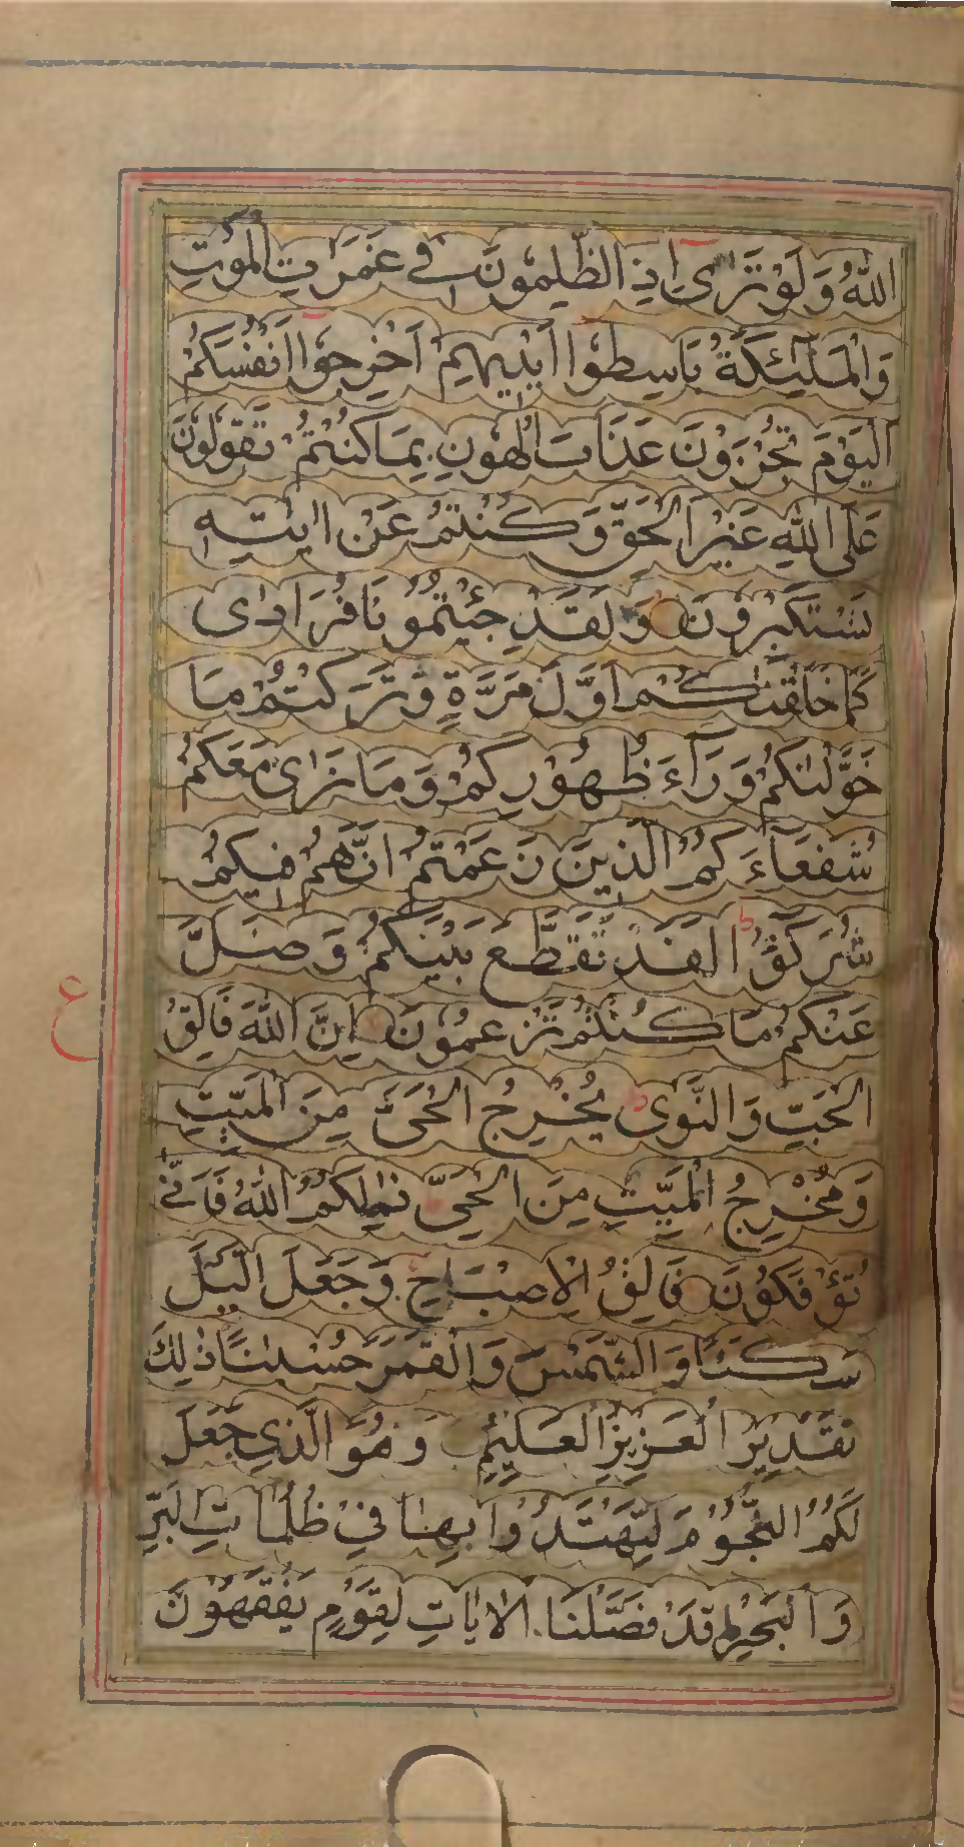 اللّٰهُ وَلَوْ تَرٰى اِذِ الظّٰلِمُوْنَ فِى غَمَرٰتِ الْمَوْتِ
وَالْمَلٰٓئِكَةُ بَاسِطُوْا اَيْدِيْهِمْ اَخْرِجُوْا اَنْفُسَكُمْ
اَلْيَوْمَ تُجْزَوْنَ عَذَابَ الْهُوْنِ بِمَا كُنْتُمْ تَقُوْلُوْنَ
عَلَى اللّٰهِ غَيْرَ الْحَقِّ وَكُنْتُمْ عَنْ اٰيٰتِهٖ
تَسْتَكْبِرُوْنَ وَلَقَدْ جِئْتُمُوْنَا فُرَادٰى
كَمَا خَلَقْنٰكُمْ اَوَّلَ مَرَّةٍ وَّتَرَكْتُمْ مَا
خَوَّلْنٰكُمْ وَرَآءَ ظُهُوْرِكُمْ وَمَا نَرٰى مَعَكُمْ
شُفَعَآءَكُمُ الَّذِيْنَ زَعَمْتُمْ اَنَّهُمْ فِيْكُمْ
شُرَكٰٓؤُا لَقَدْ تَقَطَّعَ بَيْنَكُمْ وَضَلَّ
عَنْكُمْ مَا كُنْتُمْ تَزْعُمُوْنَ اِنَّ اللّٰهَ فَالِقُ
الْحَبِّ وَالنَّوٰى يُخْرِجُ الْحَىَّ مِنَ الْمَيِّتِ
وَمُخْرِجُ الْمَيِّتِ مِنَ الْحَىِّ ذٰلِكُمُ اللّٰهُ فَاَنّٰى
تُؤْفَكُوْنَ فَالِقُ الْاِصْبَاحِ وَجَعَلَ الَّيْلَ
سَكَنًا وَّالشَّمْسَ وَالْقَمَرَ حُسْبَانًا ذٰلِكَ
تَقْدِيْرُ الْعَزِيْزِ الْعَلِيْمِ وَهُوَ الَّذِىْ جَعَلَ
لَكُمُ النُّجُوْمَ لِتَهْتَدُوْا بِهَا فِىْ ظُلُمَاتِ الْبَرِّ
وَالْبَحْرِ قَدْ فَصَّلْنَا الْاٰيَاتِ لِقَوْمٍ يَفْقَهُوْنَ
ع